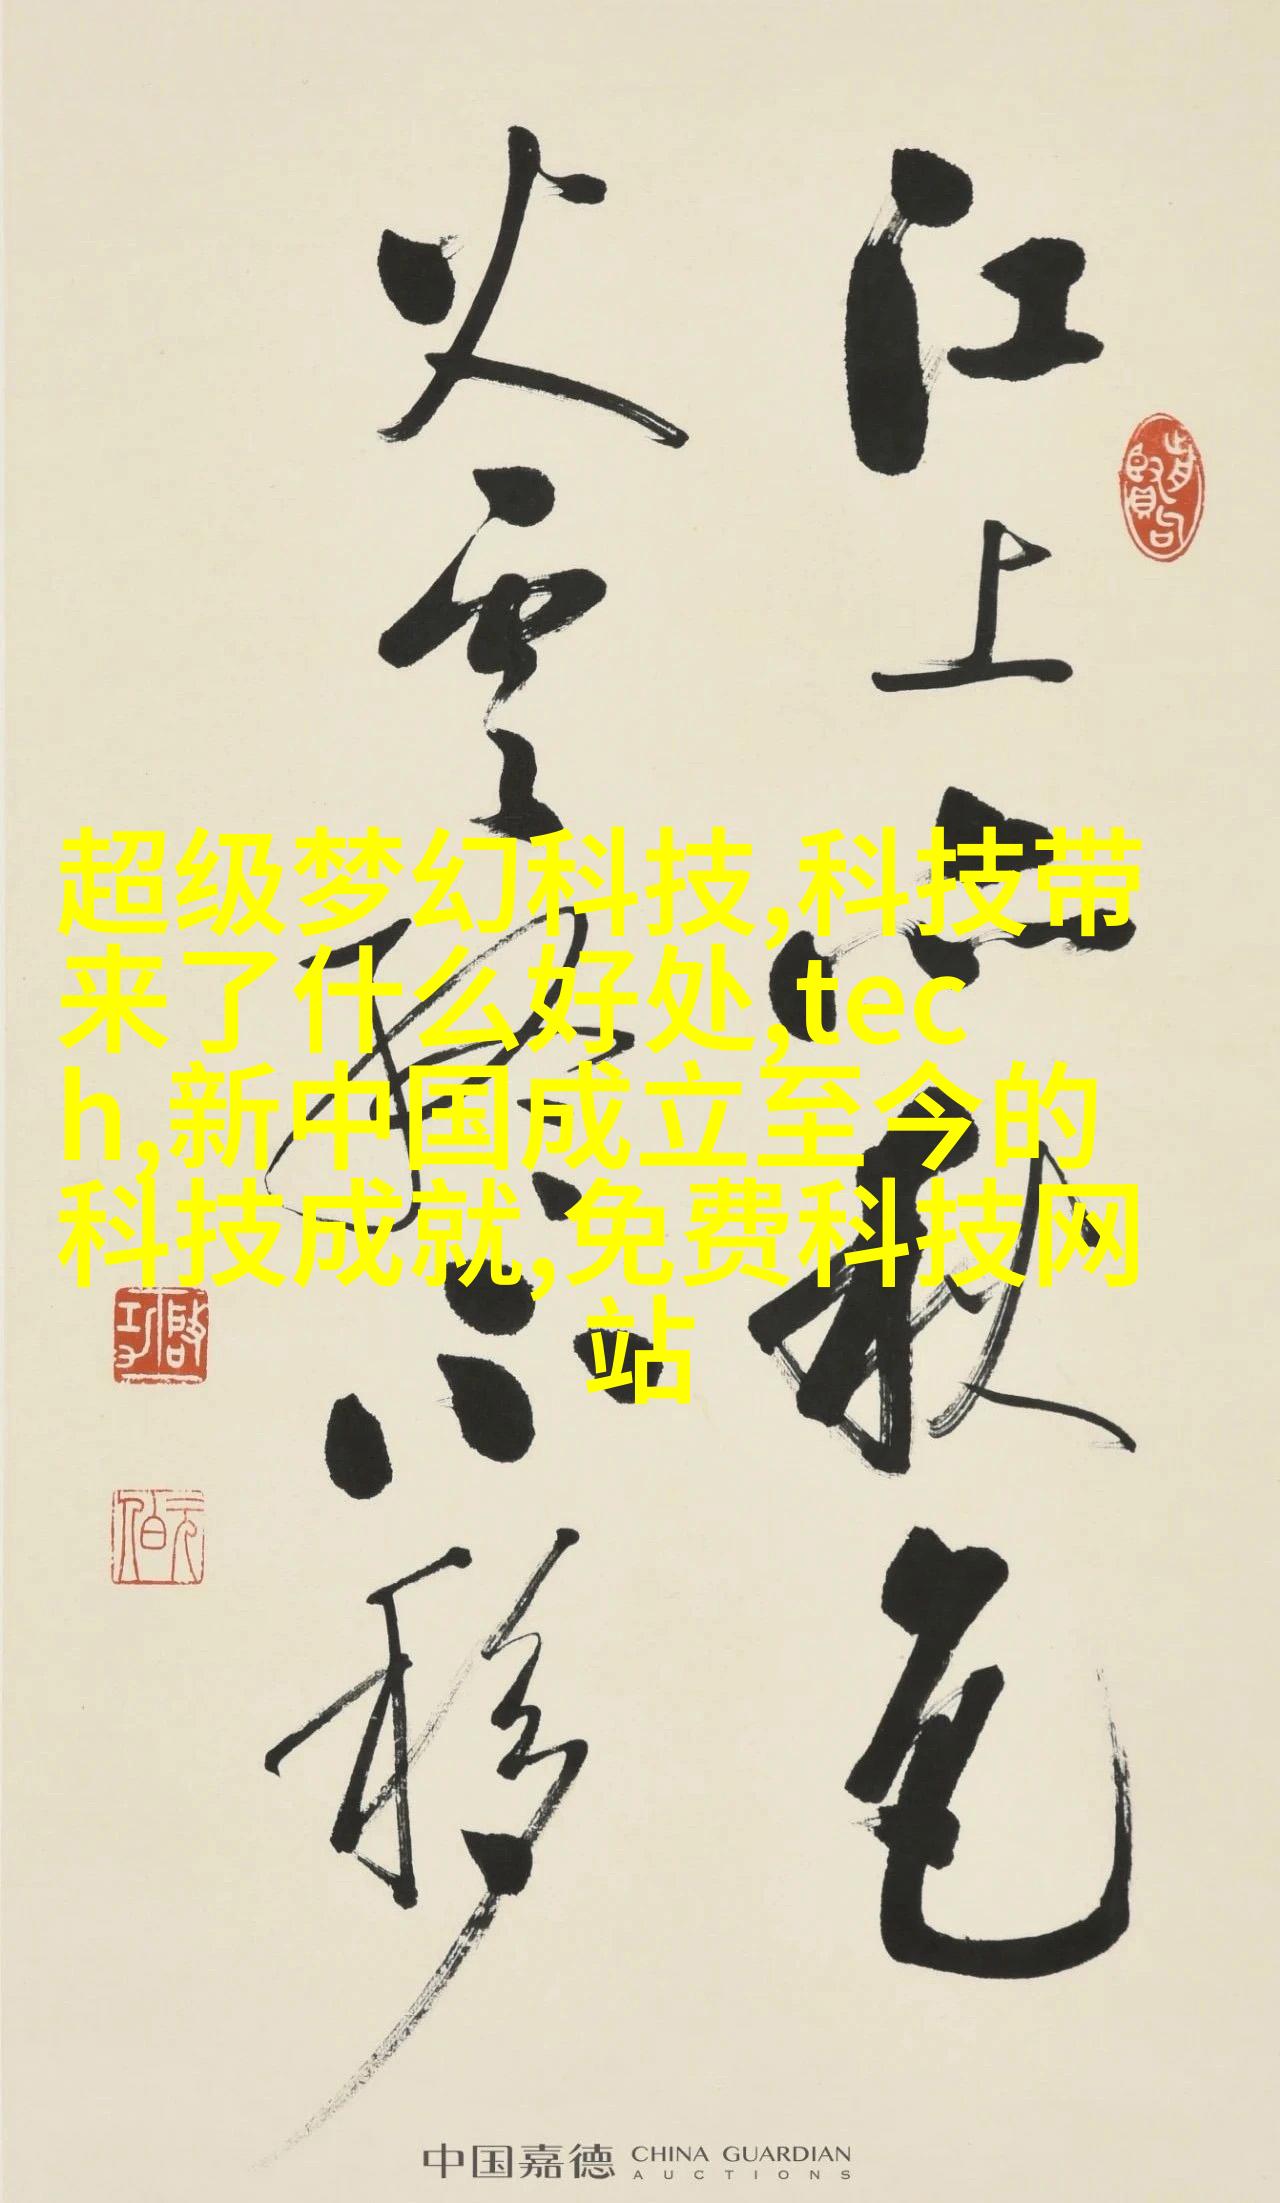 江上六秋色
火雲終不移
超级梦幻科技,科技带
来了什么好处,tec
h,新中国成立至今的
科技成就,免费科技网
站
啓功
元伯
中国嘉德 CHINA GUARDIAN
AUCTIONS